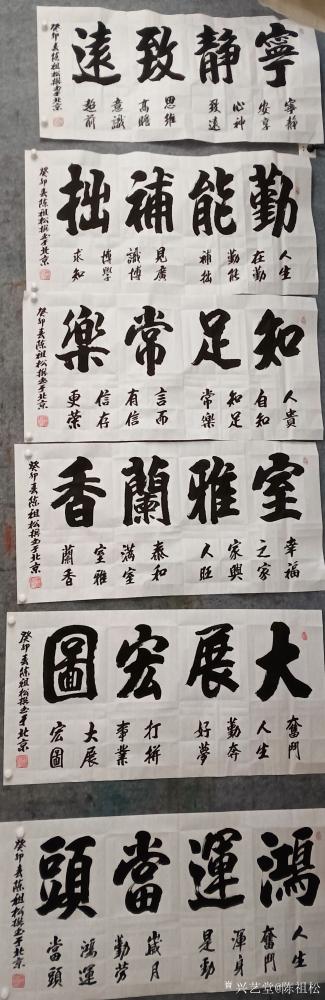 寧靜致遠
寧靜
安享
心神
致遠
思維
高瞻
意識
超前
癸卯春陳祖松撰书于北京
勤能補拙
人生
在勤
勤能
補拙
見廣
識博
博學
求知
癸卯春陳祖松撰书于北京
知足常樂
人貴
自知
知足
常樂
言而
有信
信存
更榮
癸卯春陳祖松撰书于北京
室雅蘭香
幸福
之家
家興
人旺
泰和
滿室
室雅
蘭香
癸卯春陳祖松撰书于北京
大展宏圖
奮鬥
人生
勤奔
好夢
打拼
事業
大展
宏圖
癸卯春陳祖松撰书于北京
鴻運當頭
人生
奮鬥
渾身
是勁
歲月
勤勞
鴻運
當頭
癸卯春陳祖松撰书于北京
兴艺堂@陈祖松